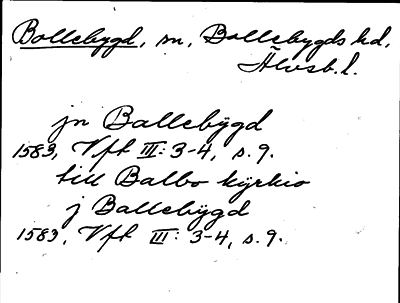 Bollebygd, sn, Bollebygds hd,
Älvsb.l.
jn Ballebÿgd
1583, Vft III: 3-4, s. 9.
till Balbo kÿrkio
j Ballebÿgd
1583, Vft III: 3-4, s. 9.